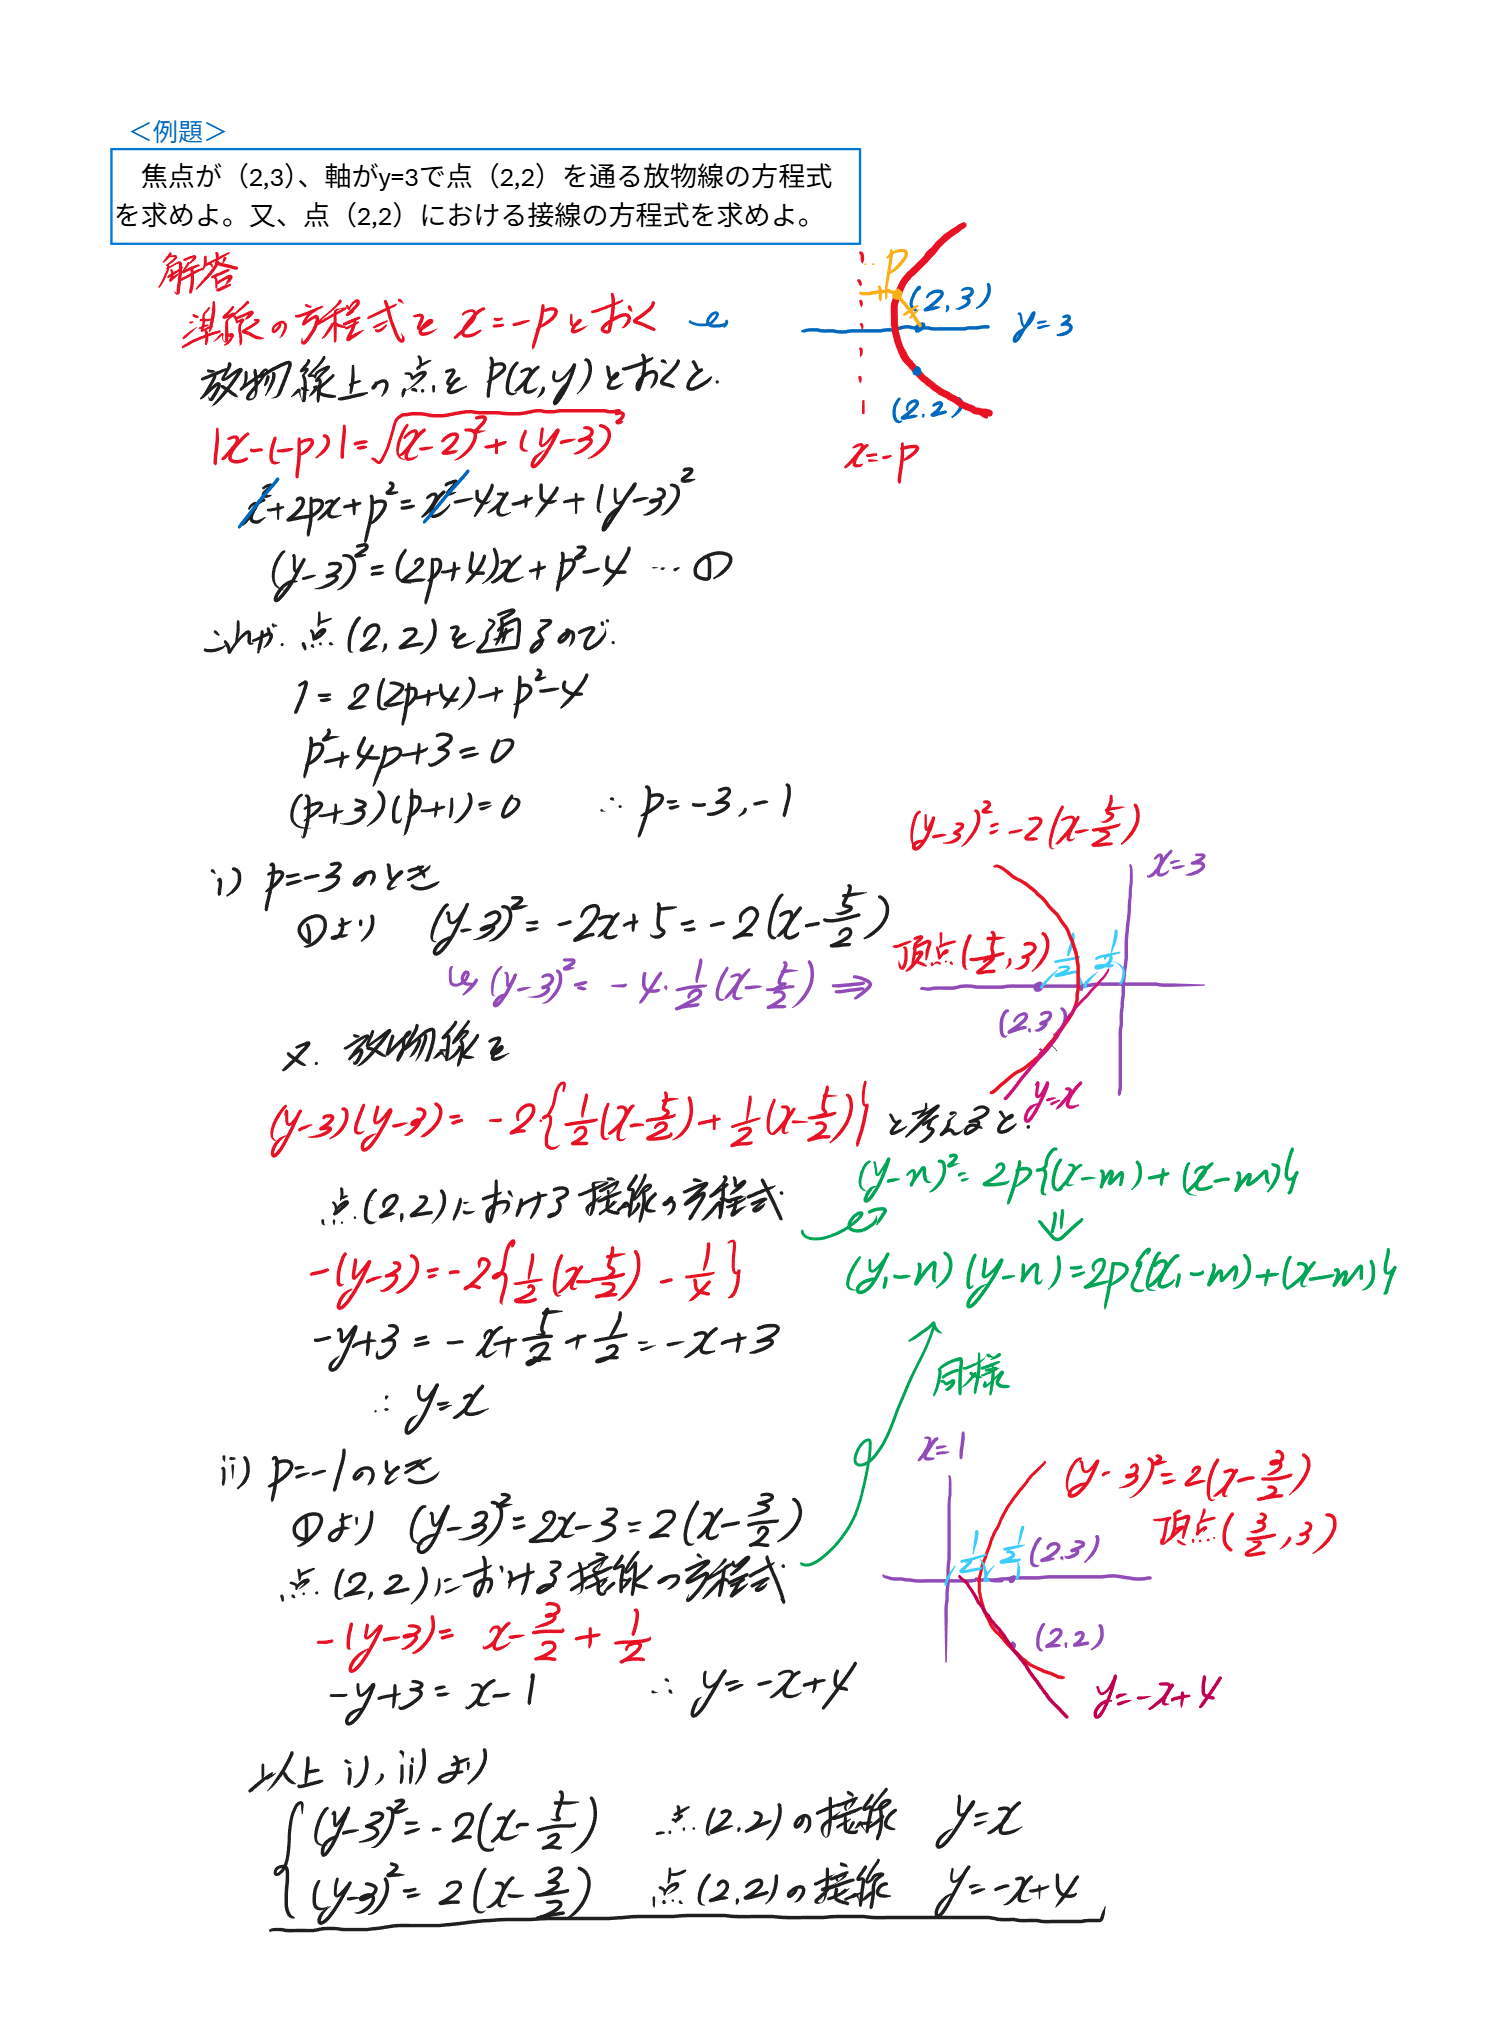 ＜例題＞
焦点が（2,3）、軸がy=3で点（2,2）を通る放物線の方程式
を求めよ。又、点（2,2）における接線の方程式を求めよ。
解答
準線の方程式を x=-p とおく
放物線上の点を P(x,y) とおくと.
|x-(-p)|=√(x-2)²+(y-3)²
x²+2px+p²=x²-4x+4+(y-3)²
(y-3)²=(2p+4)x+p²-4 … ①
p
(2,3)
y=3
(2.2)
x=-p
これが. 点(2,2)を通るので.
1=2(2p+4)+p²-4
p²+4p+3=0
(p+3)(p+1)=0 ∴ p=-3,-1
i) p=-3のとき
①より (y-3)²=-2x+5=-2(x-5/2)
(y-3)²=-4・1/2(x-5/2) ⇒
(y-3)²=-2(x-5/2)
x=3
頂点(5/2,3)
1/2 1/2
(2.3)
y=x
又. 放物線を
(y-3)(y-3)= -2{1/2(x-5/2)+1/2(x-5/2)} と考えると.
点(2,2)における接線の方程式.
(y-n)²=2p{(x-m)+(x-m)}
⇓
(y₁-n)(y-n)=2p{(x₁-m)+(x-m)}
-(y-3)=-2{1/2(x-5/2)-1/4}
-y+3=-x+5/2+1/2=-x+3
∴ y=x
同様
ii) p=-1のとき
①より (y-3)²=2x-3=2(x-3/2)
点(2,2)における接線の方程式.
-(y-3)= x-3/2+1/2
-y+3=x-1 ∴ y=-x+4
x=1
(y-3)²=2(x-3/2)
頂点(3/2,3)
1/2 1/2 (2.3)
(2.2)
y=-x+4
以上 i),ii)より
(y-3)²=-2(x-5/2) 点(2.2)の接線 y=x
(y-3)²=2(x-3/2) 点(2.2)の接線 y=-x+4